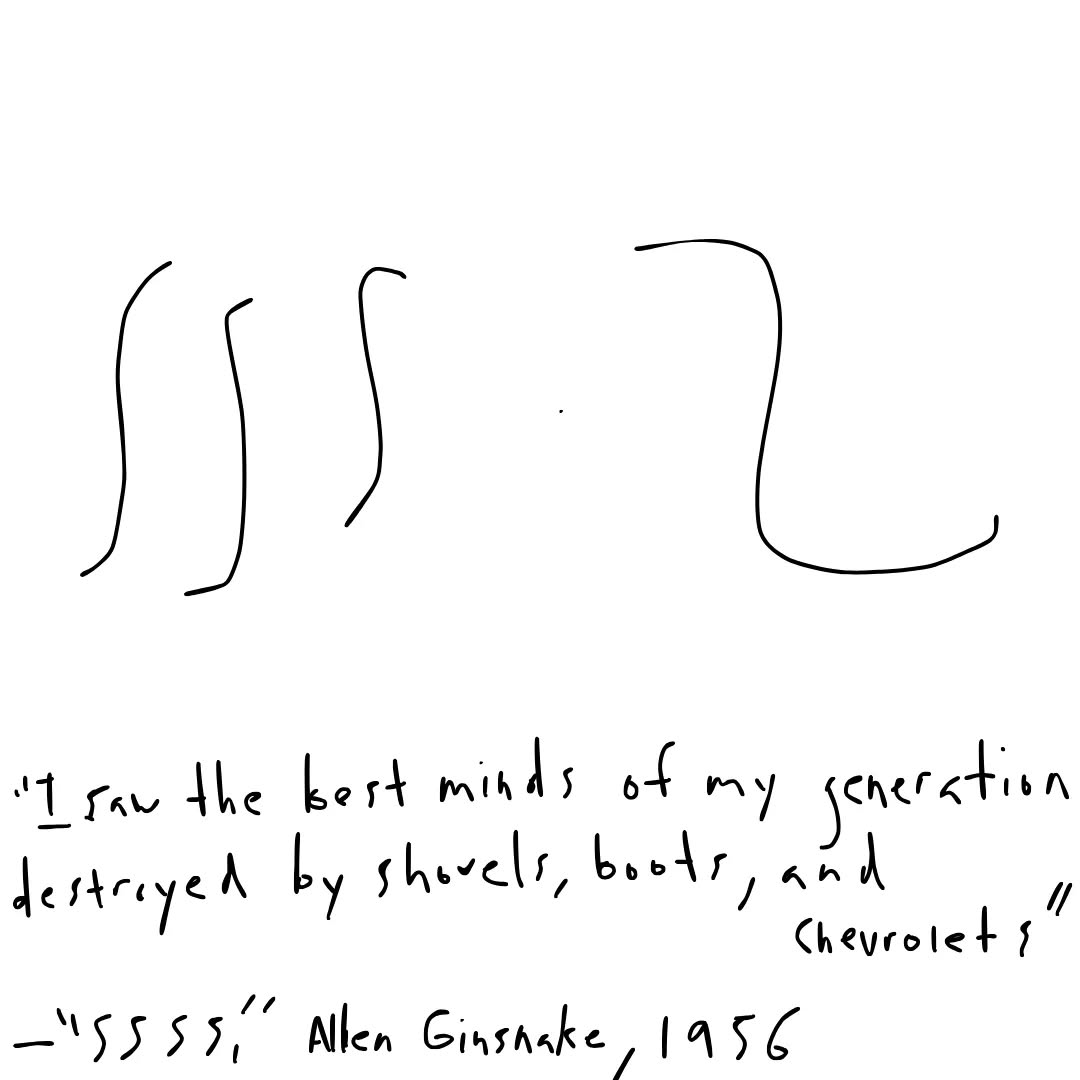 "I saw the best minds of my generation
destroyed by shovels, boots, and
Chevrolets"
—"SSSS," Allen Ginsnake, 1956